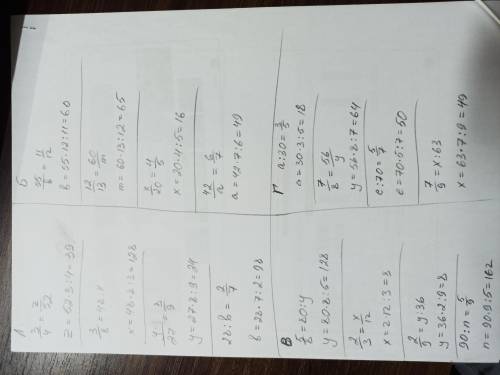 А
3/4 = z/52
z = 52·3:4=39
3/8 = 48:x
x=48·8:3=128
y/27 = 8/9
y=27·8:9=24
28:b = 2/7
b=28·7:2=98
Б
55/b = 11/12
b=55·12:11=60
12/13 = 60/m
m=60·13:12=65
x/20 = 4/5
x=20·4:5=16
42/a = 6/7
a=42·7:6=49
В
5/8 = 80:y
y=80·8:5=128
2/3 = x/12
x=2·12:3=8
2/9 = y:36
y=36·2:9=8
90:n = 5/9
n=90·9:5=162
Г
a:30 = 3/5
a=30·3:5=18
7/8 = 56/y
y=56·8:7=64
c:70 = 5/7
c=70·5:7=50
7/9 = x:63
x=63·7:9=49